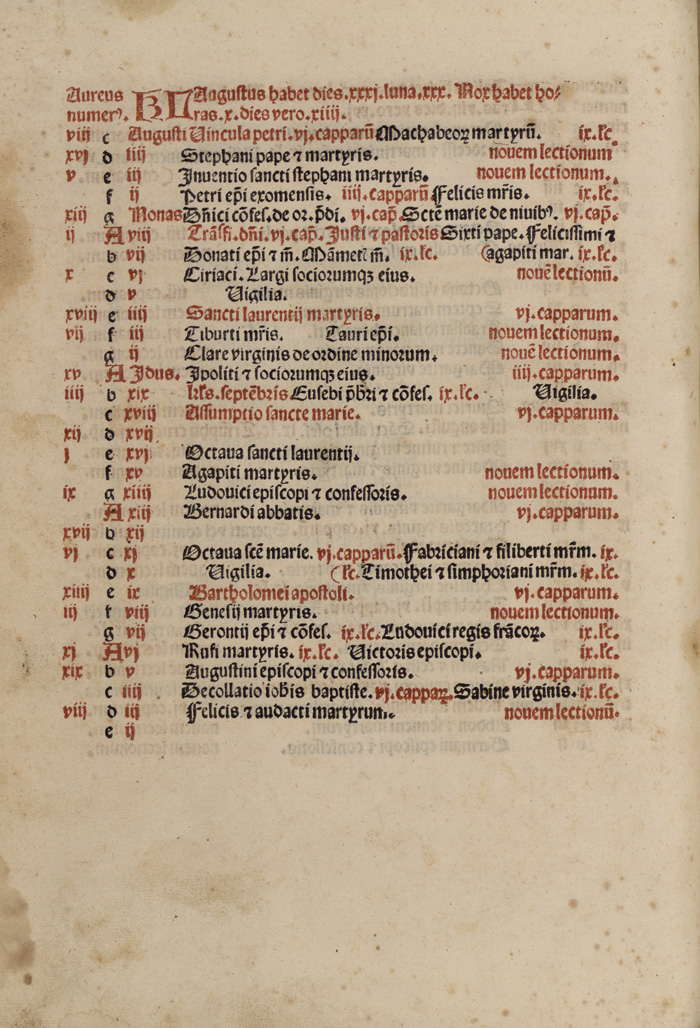 Aureus KL Augustus habet dies.xxxj.luna.xxx. Nox habet ho⸗
numerꝰ. ras.x.dies vero.xiiij.
viij c Augusti Uincula petri.vj.capparū Machabeoꝝ martyrū. ix.lc̄
xvj d iiij Stephani pape ⁊ martyris. nouem lectionum
v e iij Inuentio sancti stephani martyris. nouem lectionum.
f ij Petri ep̄i exomensis. iiij.capparū Felicis mr̄is. ix.lc̄.
xiij g Nonas Dn̄ici cōfes.de or.p̄di. vj.cap̄. Sctē marie de niuibꝰ. vj.cap̄.
ij A viij Trāsfi.dn̄i.vj.cap̄. Justi ⁊ pastoris Sixti pape. Felicissimi ⁊
b vij Donati ep̄i ⁊ m̄. Māmetꝭ m̄. ix.lc̄. (agapiti mar. ix.lc̄.
x c vj Ciriaci. Largi sociorumqꝫ eius. nouē lectionū.
d v Uigilia.
xviij e iiij Sancti laurentij martyris. vj.capparum.
vij f iij Tiburti mr̄is. Tauri ep̄i. nouem lectionum.
g ij Clare virginis de ordine minorum. nouē lectionum.
xv A Jdus. Ipoliti ⁊ sociorumqꝫ eius. iiij.capparum.
iiij b xix klr̄s.septēbris Eusebi p̄bri ⁊ cōfes. ix.lc̄. Uigilia.
c xviij Assumptio sancte marie. vj.capparum.
xij d xvij
j e xvj Octaua sancti laurentij.
f xv Agapiti martyris. nouem lectionum.
ix g xiiij Ludouici episcopi ⁊ confessoris. nouem lectionum.
A xiij Bernardi abbatis. vj.capparum.
xvij b xij
vj c xj Octaua scē marie. vj.capparū. Fabriciani ⁊ filiberti mr̄m. ix.
d x Uigilia. (lc̄. Timothei ⁊ simphoriani mr̄m. ix.lc̄.
xiiij e ix Bartholomei apostoli. vj.capparum.
iij f viij Genesij martyris. nouem lectionum.
g vij Gerontij ep̄i ⁊ cōfes. ix.lc̄. Ludouici regis frācoꝝ. ix.lc̄.
xj A vj Rufi martyris. ix.lc̄. Uictoris episcopi. ix.lc̄.
xix b v Augustini episcopi ⁊ confessoris. vj.capparum.
c iiij Decollatio iohīs baptiste. vj.cappaꝝ. Sabine virginis. ix.lc̄.
viij d iij Felicis ⁊ audacti martyrum. nouem lectionū.
e ij